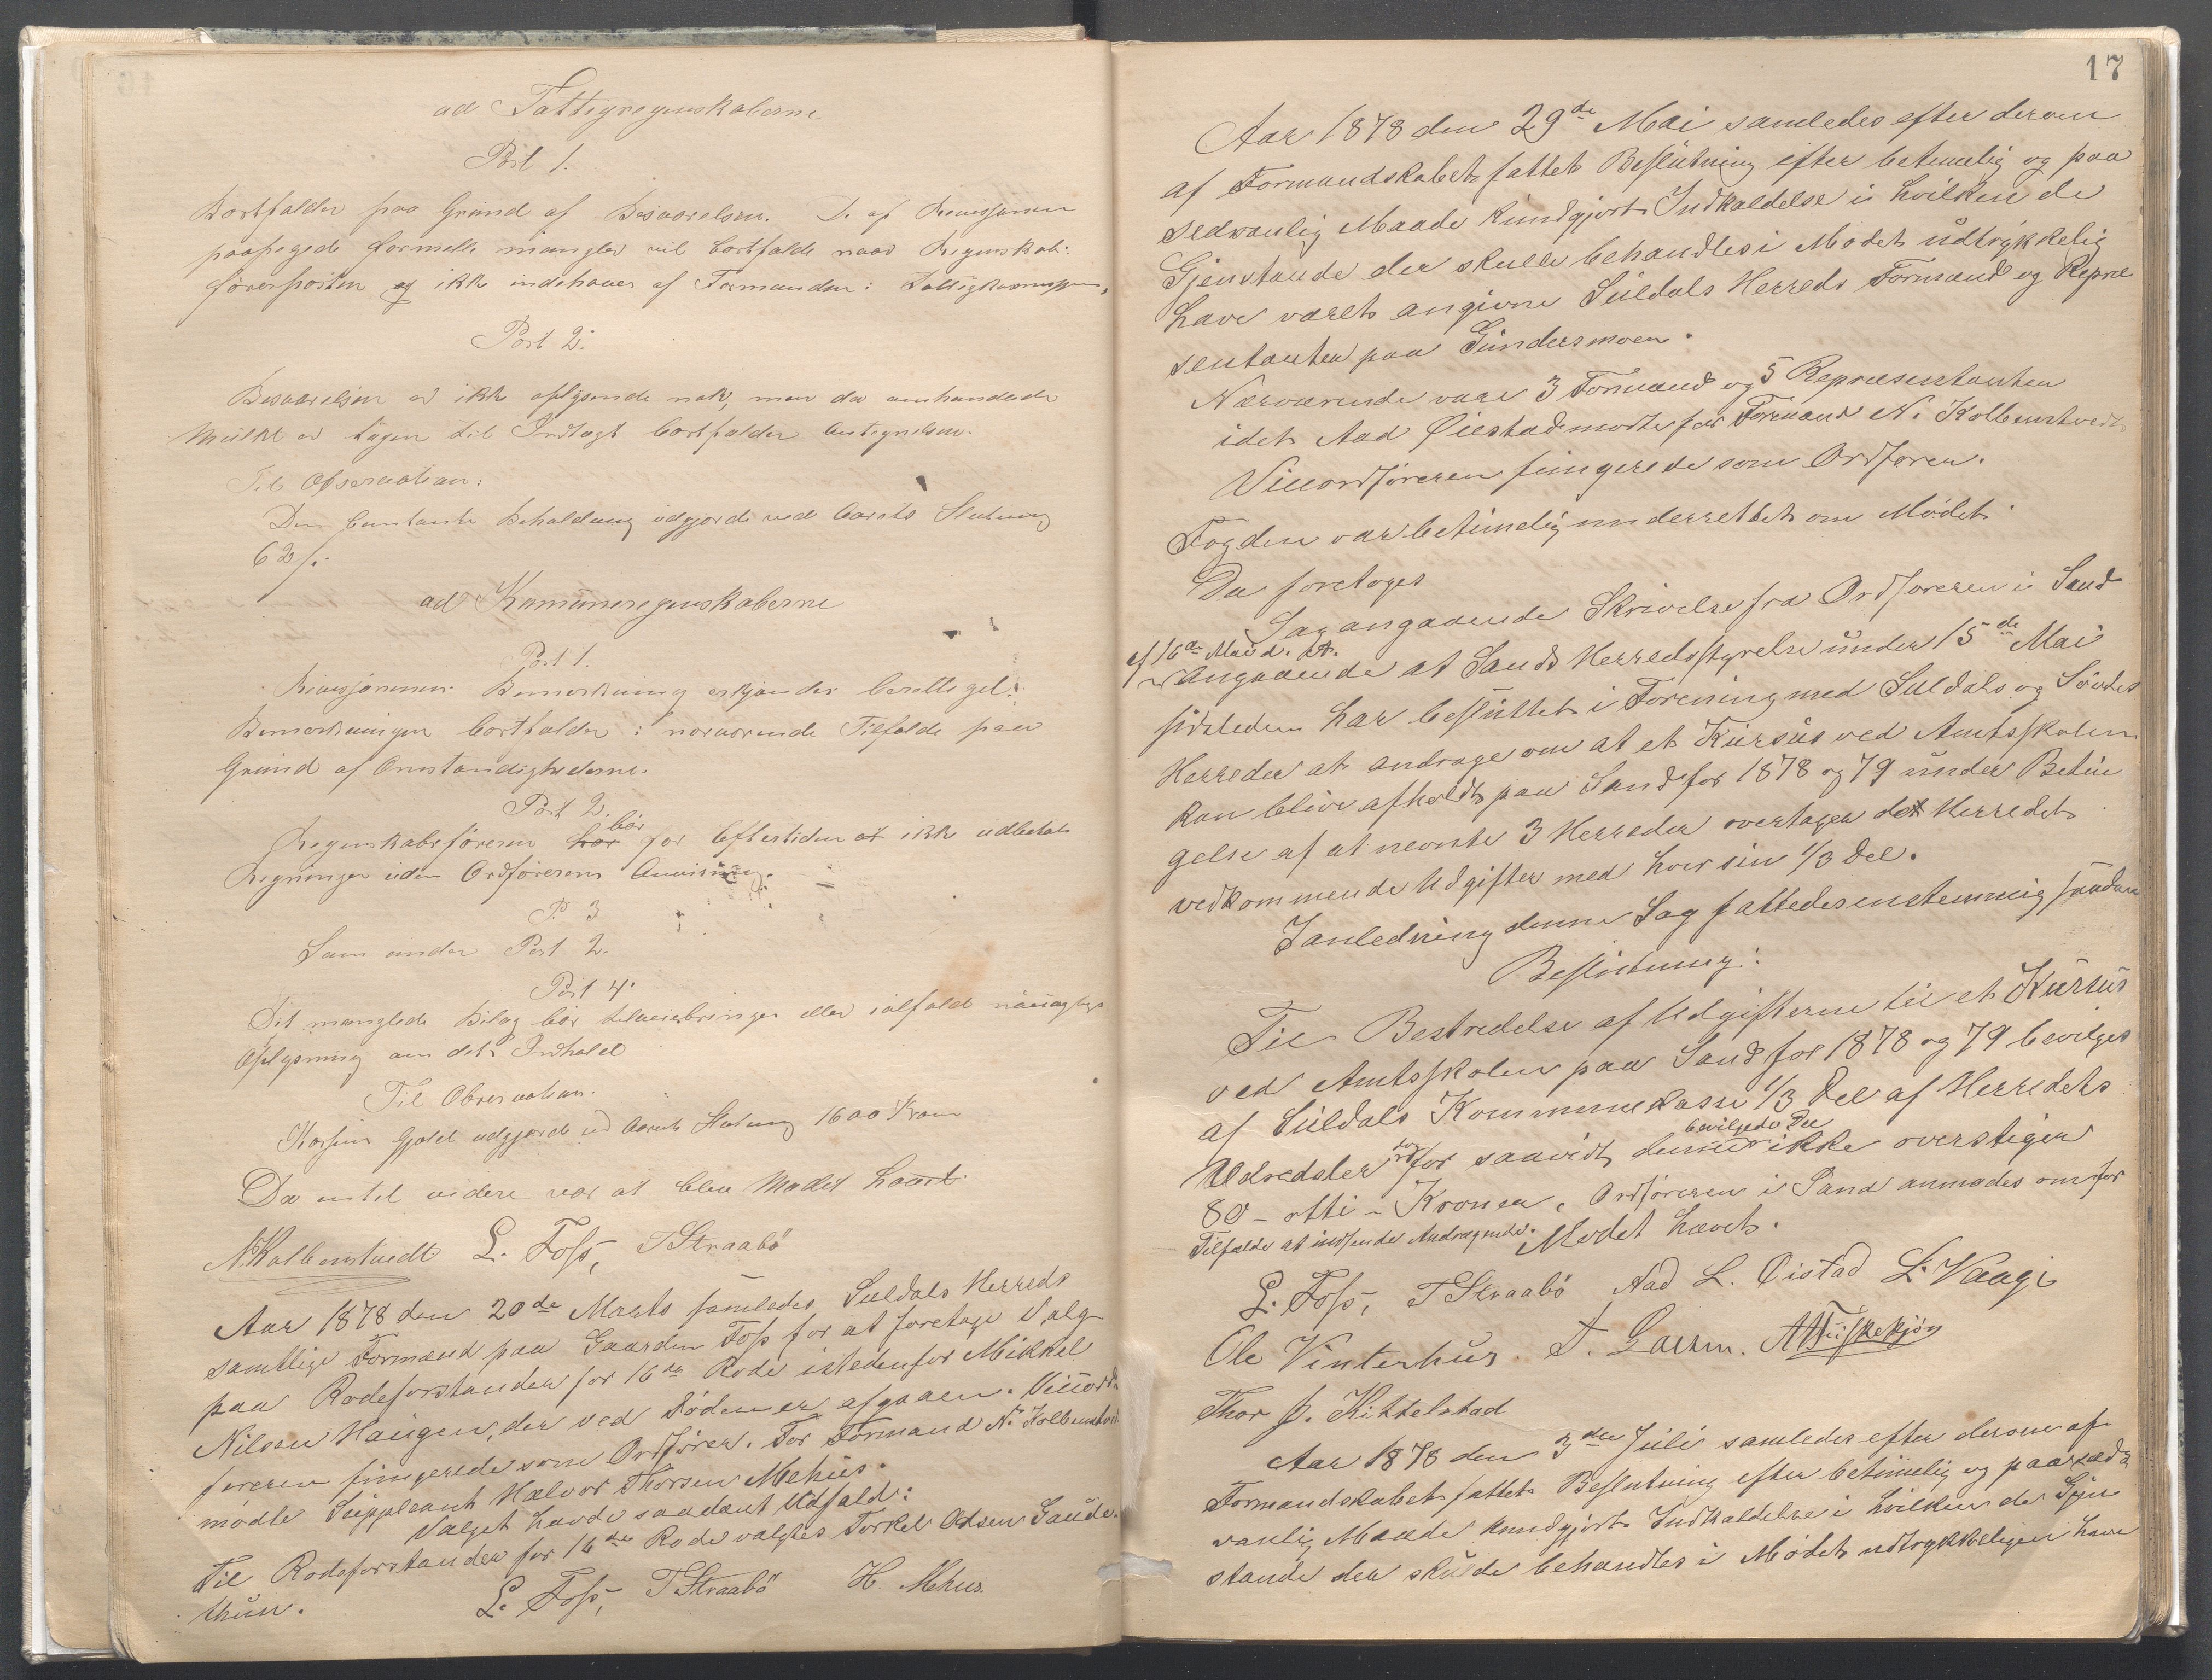 ad Fattigregnskaberne
Post 1.
Bortfalder paa Grund af Besvarelsen. De af Revisjonen
paapegede formelle mangler vil bortfalde naar Regnskab:
førerposten og ikke indehaves af Formanden i
Post 2.
Besvarelsen er ikke oplysende nok, men da omhandlede
Mulkt er tagen til Indtægt bortfalder Antegnelsen.
Til Observation:
Den Contante Behåldning udgjorde ved Aarets Slutning
62 /.
ad Komuneregnskaberne
Post 1.
Revisjonens Bemærkning erkjendes berettiget.
Bemærkningen bortfalder i nærværende Tilfælde paa
Grund af Omstændighederne.
Post 2.
Regnskabsføreren bør for Eftertiden at ikke udbetale
Regninger uden Ordførerens Anvisning.
P. 3
Som under Post 2.
Post 4.
Det manglede Bilag bør tilveiebringes eller ialfald nøiagtigt
Oplysning om dets Indhold
Til Observation.
Kassens Gjæld udgjorde ved Aarets Slutning 1600 Kroner
Da intet videre var at blev Mødet hævet.
N. Kolbenstvedt L. Foss, T Straabø
Aar 1878 den 20de Marts samledes Suldals Herreds
samtlige Formænd paa Gaarden Foss for at foretage Valg
paa Rodeforstander for 16de Rode istedenfor Mikkel
Nilsen Haugen, der ved Døden er afgaaen. Viceord
føreren fungerede som Ordfører. For Formand N. Kolbenstvedt
mødte Suppleant Halvor Thorsen Mehus.
Valget havde saadant Udfald:
Til Rodeforstander for 16de Rode valgtes Torkel Odsen Gaude
thun.
L. Foss, T Straabø H. Mehus.
17
Aar 1878 den 29de Mai samledes efter derom
af Formandskabet fattet Beslutning efter betimelig og paa
sedvanlig Maade kundgjort Indkaldelse i hvilken de
Gjenstande der skulle behandles i Mødet udtrykkelig
have været angivne Suldals Herreds Formænd og Repræ
sentanter paa Gundersmoen.
Nærværende vare 3 Formænd og 5 Repræsentanter
idet Aad Øiestad mødte for Formand N. Kolbenstvedt
Viceordføreren fungerede som Ordfører.
Fogden var betimelig underrettet om Mødet.
Da foretoges
Sag angaaende Skrivelse fra Ordføreren i Sand
af 16de Mai d. A.
Angaaende at Sands Herredsstyrelse under 15de Mai
sidstleden har besluttet i Forening med Suldals og Søvdes
Herreder at andrage om at et Kursus ved Amtsskolen
kan blive afholdt paa Sand for 1878 og 79 under Betin
gelse af at nevnte 3 Herreder overtager det Herredet
vedkommende Udgifter med hver sin 1/3 Del.
I anledning denne Sag fattedes enstemmig saadan
Beslutning:
Til Bestridelse af Udgifterne til et Kursus
ved Amtsskolen paa Sand for 1878 og 79 bevilges
af Suldals Kommunekasse 1/3 Del af Herredets
bevilgede Del
Udredsler dog for saavidt denne ikke overstiger
80 - otti - Kroner. Ordføreren i Sand anmodes om for
Tilfælde at indsende Andragende. Mødet hævet.
L. Foss, T Straabø Aad L. Øistad L. Vaage
Ole Vinterhus. T. Garen.
Thor J. Kittelstad
Aar 1878 den 3die Juli samledes efter derom af
Formandskabet fattet Beslutning efter betimelig og paa sæd
vanlig Maade kundgjort Indkaldelse i hvilken de Gjen
stande der skulde behandles i Mødet udtrykkeligen have